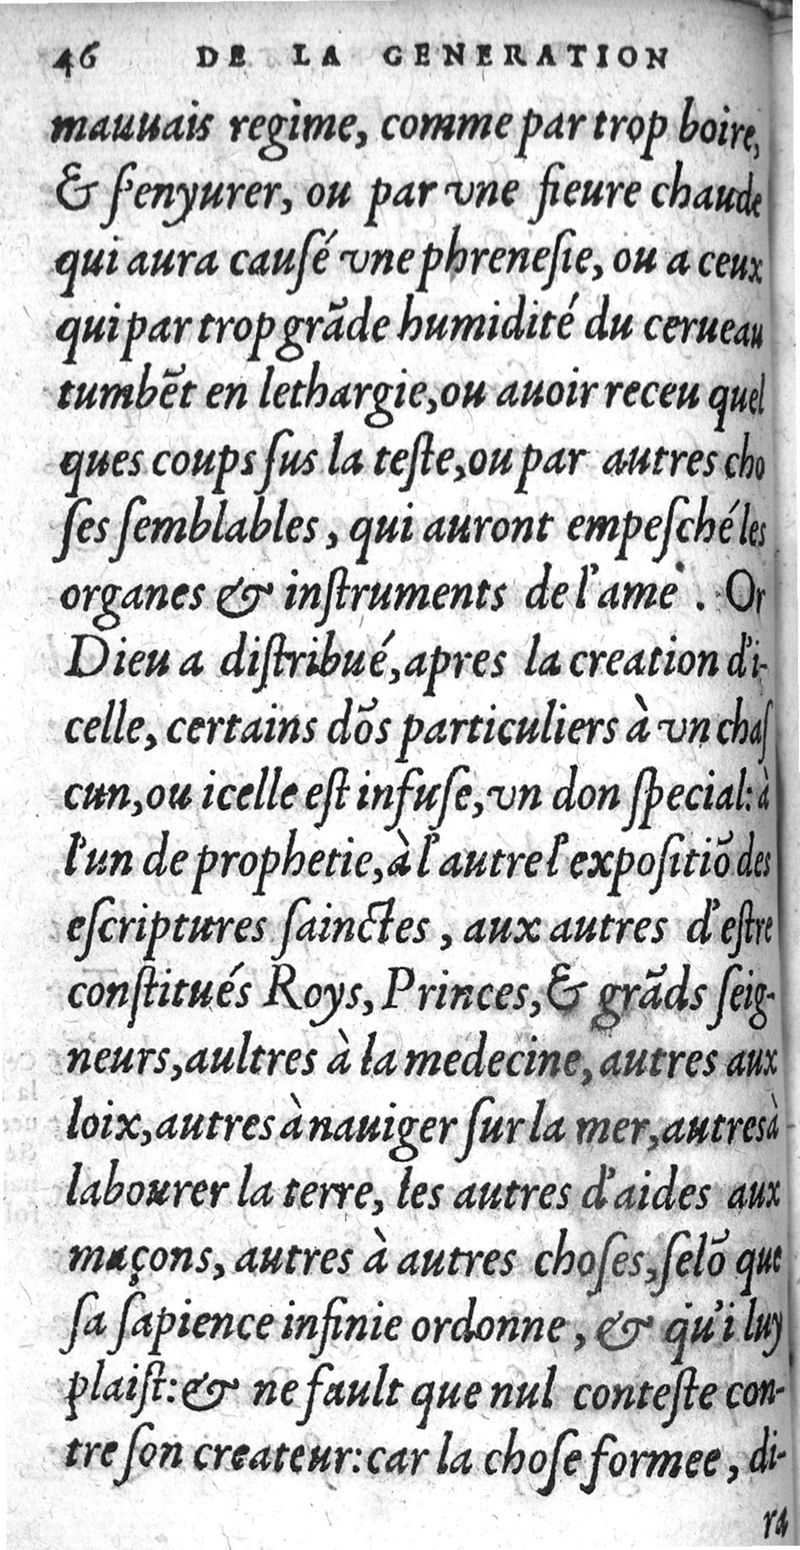 46 DE LA GENERATION
mauuais regime, comme par trop boire,
& ſ'enyurer, ou par vne fieure chaude
qui aura cauſé vne phreneſie, ou a ceux
qui par trop grāde humidité du cerueau
tumbēt en lethargie,ou auoir receu quel
ques coups ſus la teſte,ou par autres cho
ſes ſemblables , qui auront empeſché les
organes & inſtruments de l'ame . Or
Dieu a diſtribué,apres la creation d'i-
celle, certains dōs particuliers à vn chaſ
cun,ou icelle eſt infuſe,vn don ſpecial: à
l'un de prophetie,à l'autre l'expoſitiō des
eſcriptures ſainctes , aux autres d'eſtre
conſtitués Roys, Princes,& grāds ſeig-
neurs,aultres à la medecine,autres aux
loix,autres à nauiger ſur la mer,autres à
labourer la terre, les autres d'aides aux
maçons, autres à autres choſes,ſelō que
ſa ſapience infinie ordonne , & qu'i luy
plaiſt:& ne fault que nul conteſte con-
tre ſon createur:car la choſe formee , di-
ra